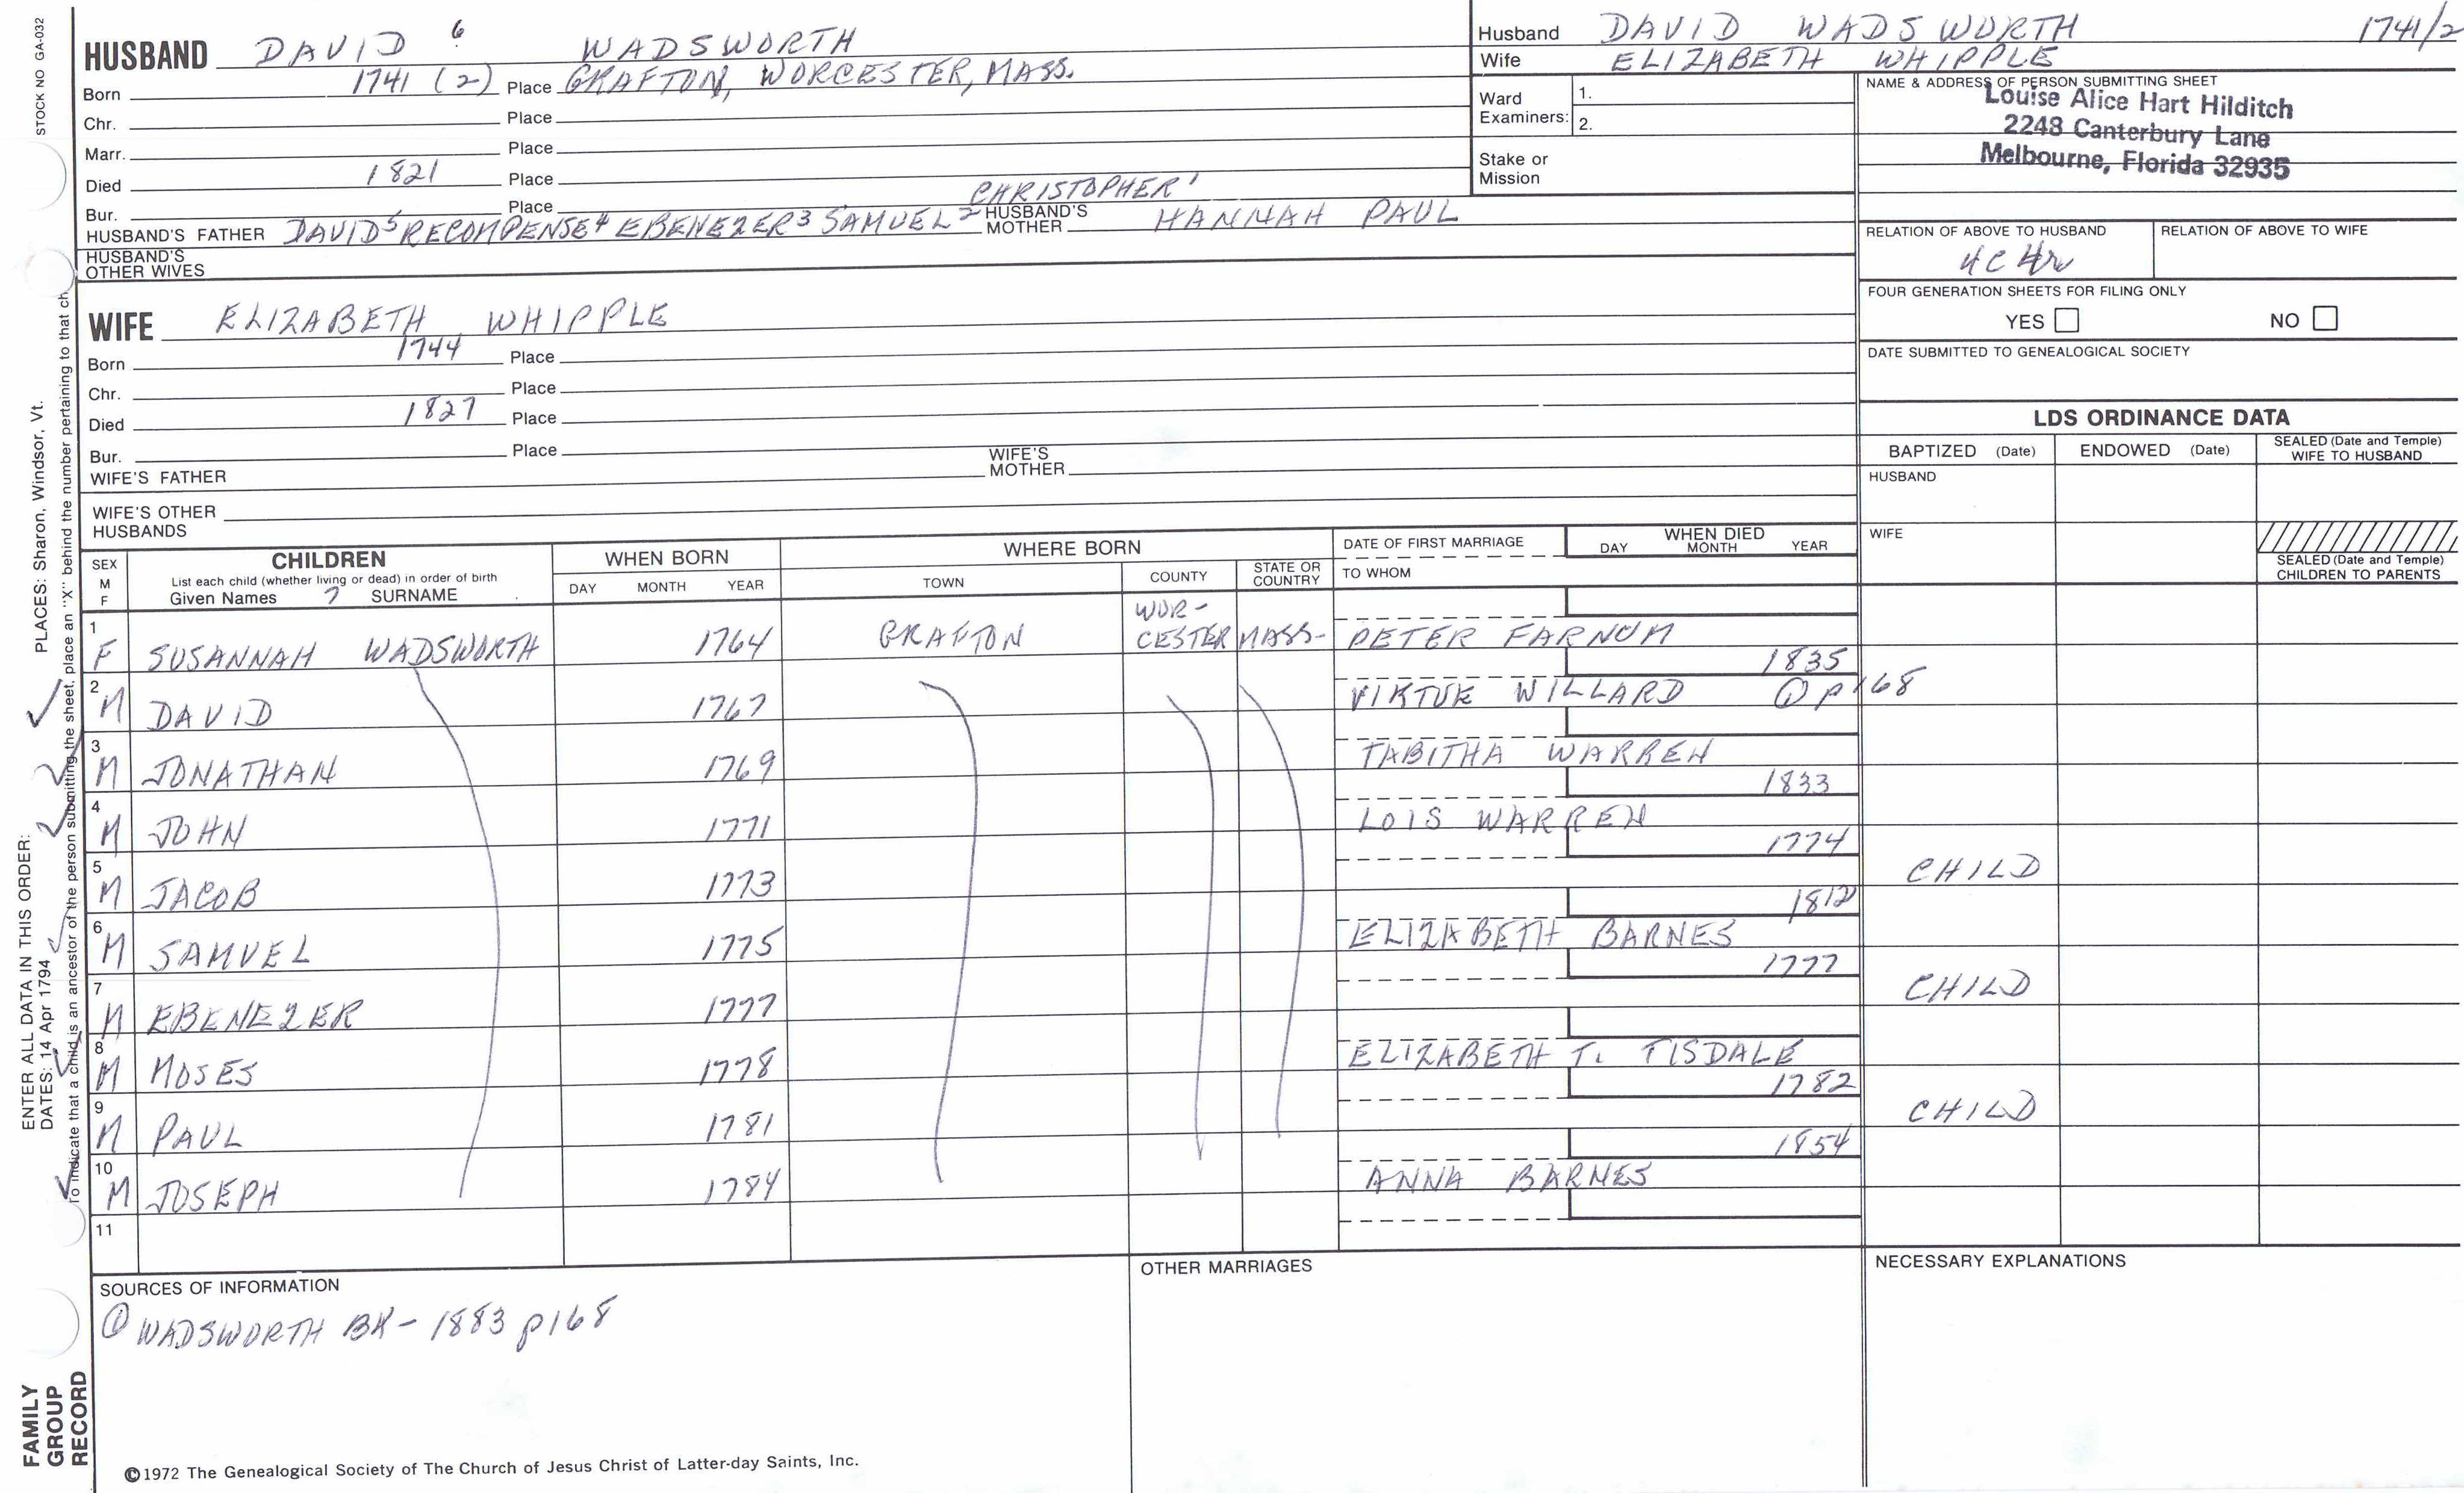 STOCK NO GA-032
HUSBAND DAVID 6 WADSWORTH
Born 1741 (2) Place GRAFTON, WORCESTER, MASS.
Chr. Place
Marr. Place
Died 1821 Place
Bur. Place CHRISTOPHER 1
HUSBAND'S FATHER DAVID 5 RECOMPENSE 4 EBENEZER 3 SAMUEL 2 HUSBAND'S MOTHER HANNAH PAUL
HUSBAND'S OTHER WIVES
WIFE ELIZABETH WHIPPLE
Born 1744 Place
Chr. Place
Died 1827 Place
Bur. Place
WIFE'S FATHER WIFE'S MOTHER
WIFE'S OTHER HUSBANDS
Husband DAVID WADSWORTH 1741/2
Wife ELIZABETH WHIPPLE
Ward Examiners: 1.
2.
Stake or Mission
NAME & ADDRESS OF PERSON SUBMITTING SHEET
Louise Alice Hart Hilditch
2248 Canterbury Lane
Melbourne, Florida 32935
RELATION OF ABOVE TO HUSBAND RELATION OF ABOVE TO WIFE
4C 4r
FOUR GENERATION SHEETS FOR FILING ONLY
YES NO
DATE SUBMITTED TO GENEALOGICAL SOCIETY
LDS ORDINANCE DATA
BAPTIZED (Date) ENDOWED (Date) SEALED (Date and Temple) WIFE TO HUSBAND
HUSBAND
WIFE
SEALED (Date and Temple) CHILDREN TO PARENTS
SEX M F CHILDREN WHEN BORN WHERE BORN DATE OF FIRST MARRIAGE WHEN DIED
List each child (whether living or dead) in order of birth DAY MONTH YEAR TOWN COUNTY STATE OR COUNTRY TO WHOM DAY MONTH YEAR
Given Names 7 SURNAME
1 F SUSANNAH WADSWORTH 1764 GRAFTON WOR-CESTER MASS- PETER FARNUM
2 M DAVID 1767 1835 VIRTUE WILLARD ① p168
3 M JONATHAN 1769 TABITHA WARREN
4 M JOHN 1771 1833 LOIS WARREN
5 M JACOB 1773 1774 CHILD
6 M SAMUEL 1775 1812 ELIZABETH BARNES
7 M EBENEZER 1777 1777 CHILD
8 M MOSES 1778 ELIZABETH T. TISDALE
9 M PAUL 1781 1782 CHILD
10 M JOSEPH 1784 1854 ANNA BARNES
11
SOURCES OF INFORMATION
① WADSWORTH BK- 1883 p168
OTHER MARRIAGES
NECESSARY EXPLANATIONS
ENTER ALL DATA IN THIS ORDER:
DATES: 14 Apr 1794
PLACES: Sharon, Windsor, Vt.
To indicate that a child is an ancestor of the person submitting the sheet, place an "X" behind the number pertaining to that ch
FAMILY GROUP RECORD
©1972 The Genealogical Society of The Church of Jesus Christ of Latter-day Saints, Inc.